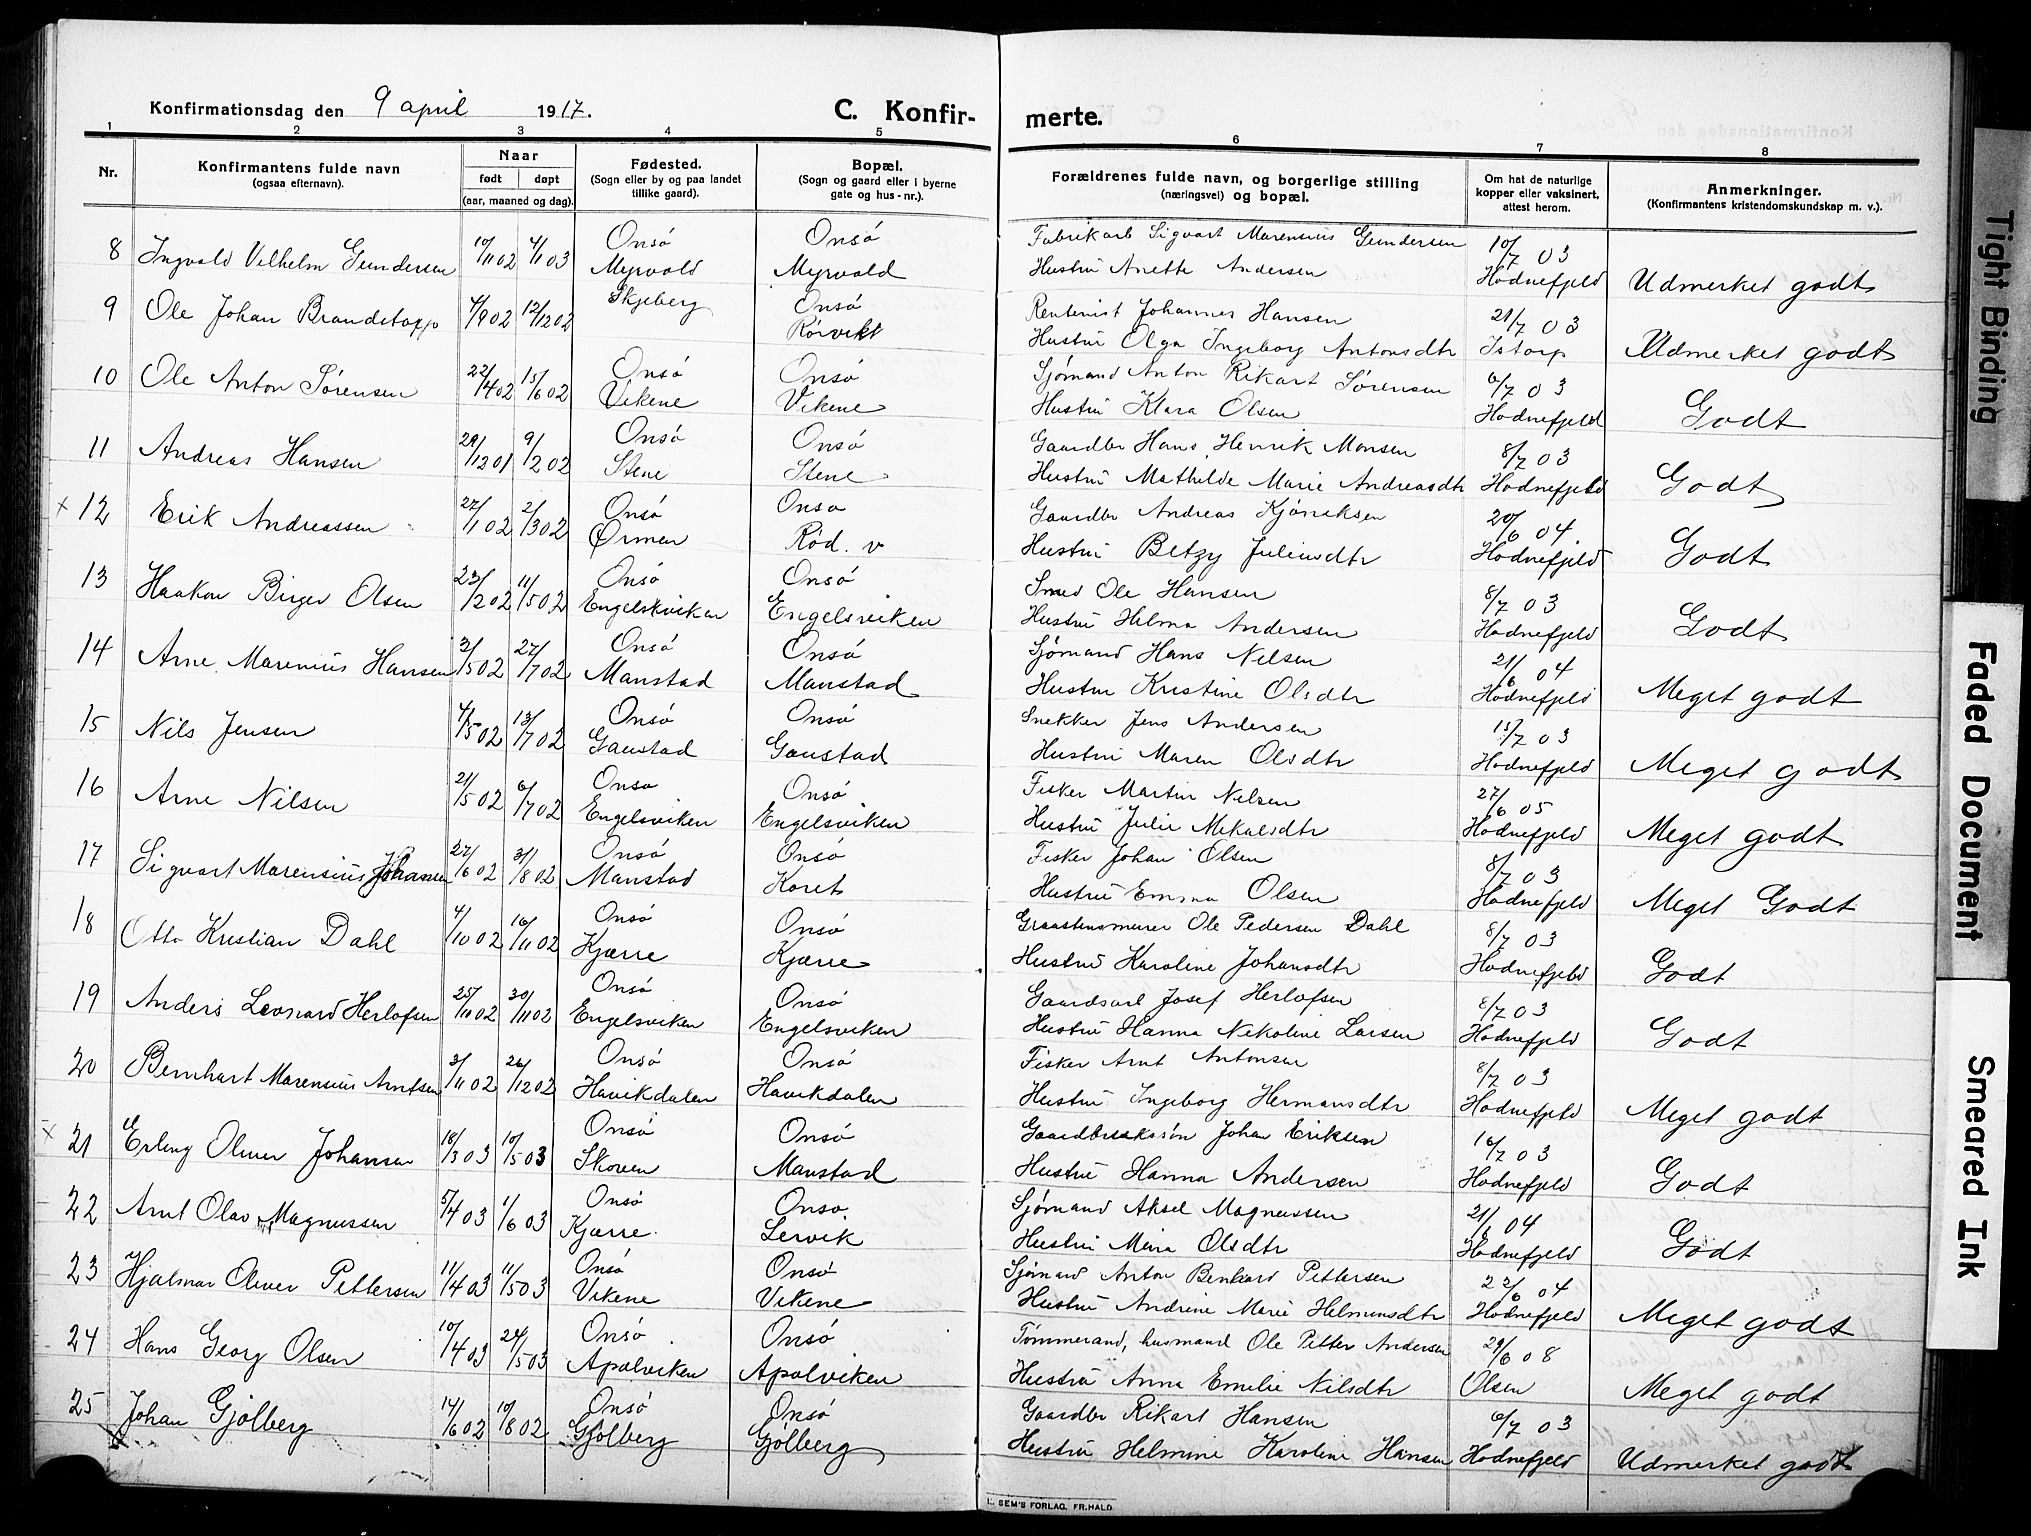 Konfirmationsdag den 9 april 1917. C. Konfir- merte.
1 2 3 4 5 6 7 8
Nr. Konfirmantens fulde navn (ogsaa efternavn). Naar født døpt (aar, maaned og dag). Fødested. (Sogn eller by og paa landet tillike gaard). Bopæl. (Sogn og gaard eller i byerne gate og hus-nr.). Forældrenes fulde navn, og borgerlige stilling (næringsvei) og bopæl. Om hat de naturlige kopper eller vaksinert, attest herom. Anmerkninger. (Konfirmantens kristendomskundskap m. v.).
8 Ingvald Vilhelm Gundersen 10/11 02 4/1 03 Onsö Onsö Fabrikarb Sigvart Marensius Gundersen 10/7 03
Myrvold Myrvold Hustru Anette Andersen Hodnefjeld Udmerket godt
9 Ole Johan Brandstopp 4/9 02 12/12 02 Skjeberg Onsö Rentenist Johannes Hansen 21/7 03
Rörvikt Hustru Olga Ingeborg Antonsdtr Istorp Udmerket godt
10 Ole Anton Sørensen 22/4 02 15/6 02 Onsö Onsö Sjømand Anton Rikart Sørensen 6/7 03
Vikene Vikene Hustru Klara Olsen Hodnefjeld Godt
11 Andreas Hansen 29/12 01 9/2 02 Onsö Onsö Gaardbr Hans Henrik Monsen 8/7 03
Stene Stene Hustru Mathilde Marie Andreasdtr Hodnefjeld Godt
x 12 Erik Andreassen 27/1 02 2/3 02 Onsö Onso Gaardbr Andreas Kjöniksen 20/6 04
Ørmen Rød. v Hustru Betzy Juliusdtr Hodnefjeld Godt
13 Haakon Birger Olsen 23/2 02 11/5 02 Onsö Onsö Smed Ole Hansen 8/7 03
Engelskviken Engelsviken Hustru Helma Andersen Hodnefjeld Godt
14 Arne Marenius Hansen 3/5 02 27/7 02 Onsö Onsö Sjømand Hans Nelsen 21/6 04
Manstad Manstad Hustru Kristine Olsdtr Hodnefjeld Meget godt
15 Nils Jensen 4/5 02 13/7 02 Onsö Onsö Snekker Jens Andersen 15/7 03
Gaustad Gaustad Hustru Maren Olsdtr Hodnefjeld Meget godt
16 Arne Nilsen 21/5 02 6/7 02 Onso Onsö Fisker Martin Nelsen 27/6 05
Engelsviken Engelsviken Hustru Julie Mikalsdtr Hodnefjeld Meget godt
17 Sigvart Marensius Johansen 27/6 02 31/8 02 Onsö Onsö Fisker Johan Olsen 8/7 03
Manstad Koret Hustru Emma Olsen Hodnefjeld Meget Godt
18 Otto Kristian Dahl 4/10 02 16/11 02 Onsö Onsö Graastensmurer Ole Pedersen Dahl 8/7 03
Kjærre Kjærre Hustru Karoline Johansdtr Hodnefjeld Godt
19 Anders Leonard Herlofsen 25/11 02 30/11 02 Onsö Onsö Gaardsarb Josef Herlofsen 8/7 03
Engelsviken Engelsviken Hustru Hanna Nekoline Larsen Hodnefjeld Godt
20 Bernhart Marensius Arntsen 3/11 02 26/12 02 Onsö Onsö Fisker Arnt Antonsen 8/7 03
Havikdalen Havikdalen Hustru Ingeborg Hermansdtr Hodnefjeld Meget godt
x 21 Erling Oliver Johansen 18/3 03 10/5 03 Onsö Onsö Johan Eriksen 16/7 03
Skoven Manstad Hustru Hanna Andersen Hodnefjeld Godt
22 Arnt Olav Magnussen 5/4 03 1/6 03 Onsö Onso Sjømand Aksel Magnussen 21/6 04
Kjærre Lervik Hustru Mina Olsdtr Hodnefjeld Godt
23 Hjalmar Oliver Pettersen 11/4 03 11/5 03 Onsö Onsö Sjømand Anton Benhard Pettersen 22/6 04
Vikene Vikene Hustru Andrine Marie Helmensdtr Hodnefjeld Meget godt
24 Hans Georg Olsen 10/4 03 24/5 03 Onsö Onsö Tömmerand, husmand Ole Petter Andersen 29/6 08
Apalviken Apalviken Hustru Anna Emilie Nilsdtr Olsen Meget godt
25 Johan Gjölberg 14/6 02 10/8 02 Onsö Onsö Gaardbr Rikart Hansen 6/7 03
Gjölberg Gjölberg Hustru Helmine Karoline Hansen Hodnefjeld Udmerket godt
SEM'S FORLAG, FR.HALD
Tight Binding
Faded Document
Smeared Ink